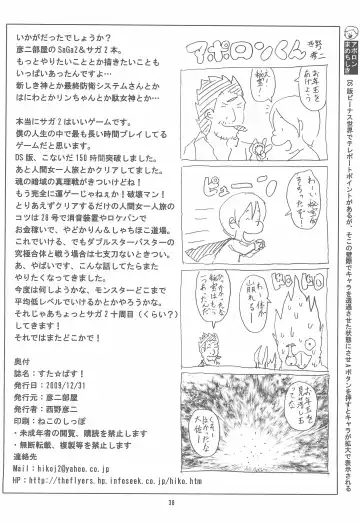 いかがだったでしょうか?
彦二部屋のSaGa2&サガ2本。
もっとやりたいこととか描きたいことも
いっぱいあったんですよ…
新しき神とか最終防衛システムさんとか
はにわとかリンちゃんとか駄女神とか…
本当にサガ2はいいゲームです。
僕の人生の中で最も長い時間プレイしてる
ゲームだと思います。
DS版、こないだ150時間突破しました。
あと人間女一人旅とかクリアしてました。
魂の暗域の真理戦がきついけどね!
もう完全に運ゲーじゃねぇか!破壊マン!
とりあえずクリアするだけの人間女一人旅の
コツは28号で消音装置やロケパンで
お金稼いで、やどかりん&しゃちほこ道場。
これでいける、でもダブルスターバスターの
究極合体と戦う場合は七支刀ないときつい。
あ、やばいです、こんな話してたらまた
やりたくなってきました。
今度は何しようかな、モンスターどこまで
平均低レベルでいけるかとかやろうかな。
それじゃあちょっとサガ2十周目(くらい?)
してきます!
それではまたどこかで!
奥付
誌名:すた☆ばす!
発行日:2009/12/31
発行元:彦二部屋
発行者:西野彦二
印刷:ねこのしっぽ
・未成年者の閲覧、購読を禁止します
・無断転載、複製等を禁止します
連絡先
Mail:hikoj2@yahoo.co.jp
HP:http://theflyers.hp.infoseek.co.jp/hiko.htm
アポロンくん
西野彦二
お年玉を
あげよう
わーい
秘宝だ
わー
体が
崩れる
お年玉を
アポロン
まめちしき
DS版ビーナス世界でテレポートポイントがあるが、そこの壁際でキャラを透過させた状態にさせAボタンを押すとキャラが拡大で表示される
38